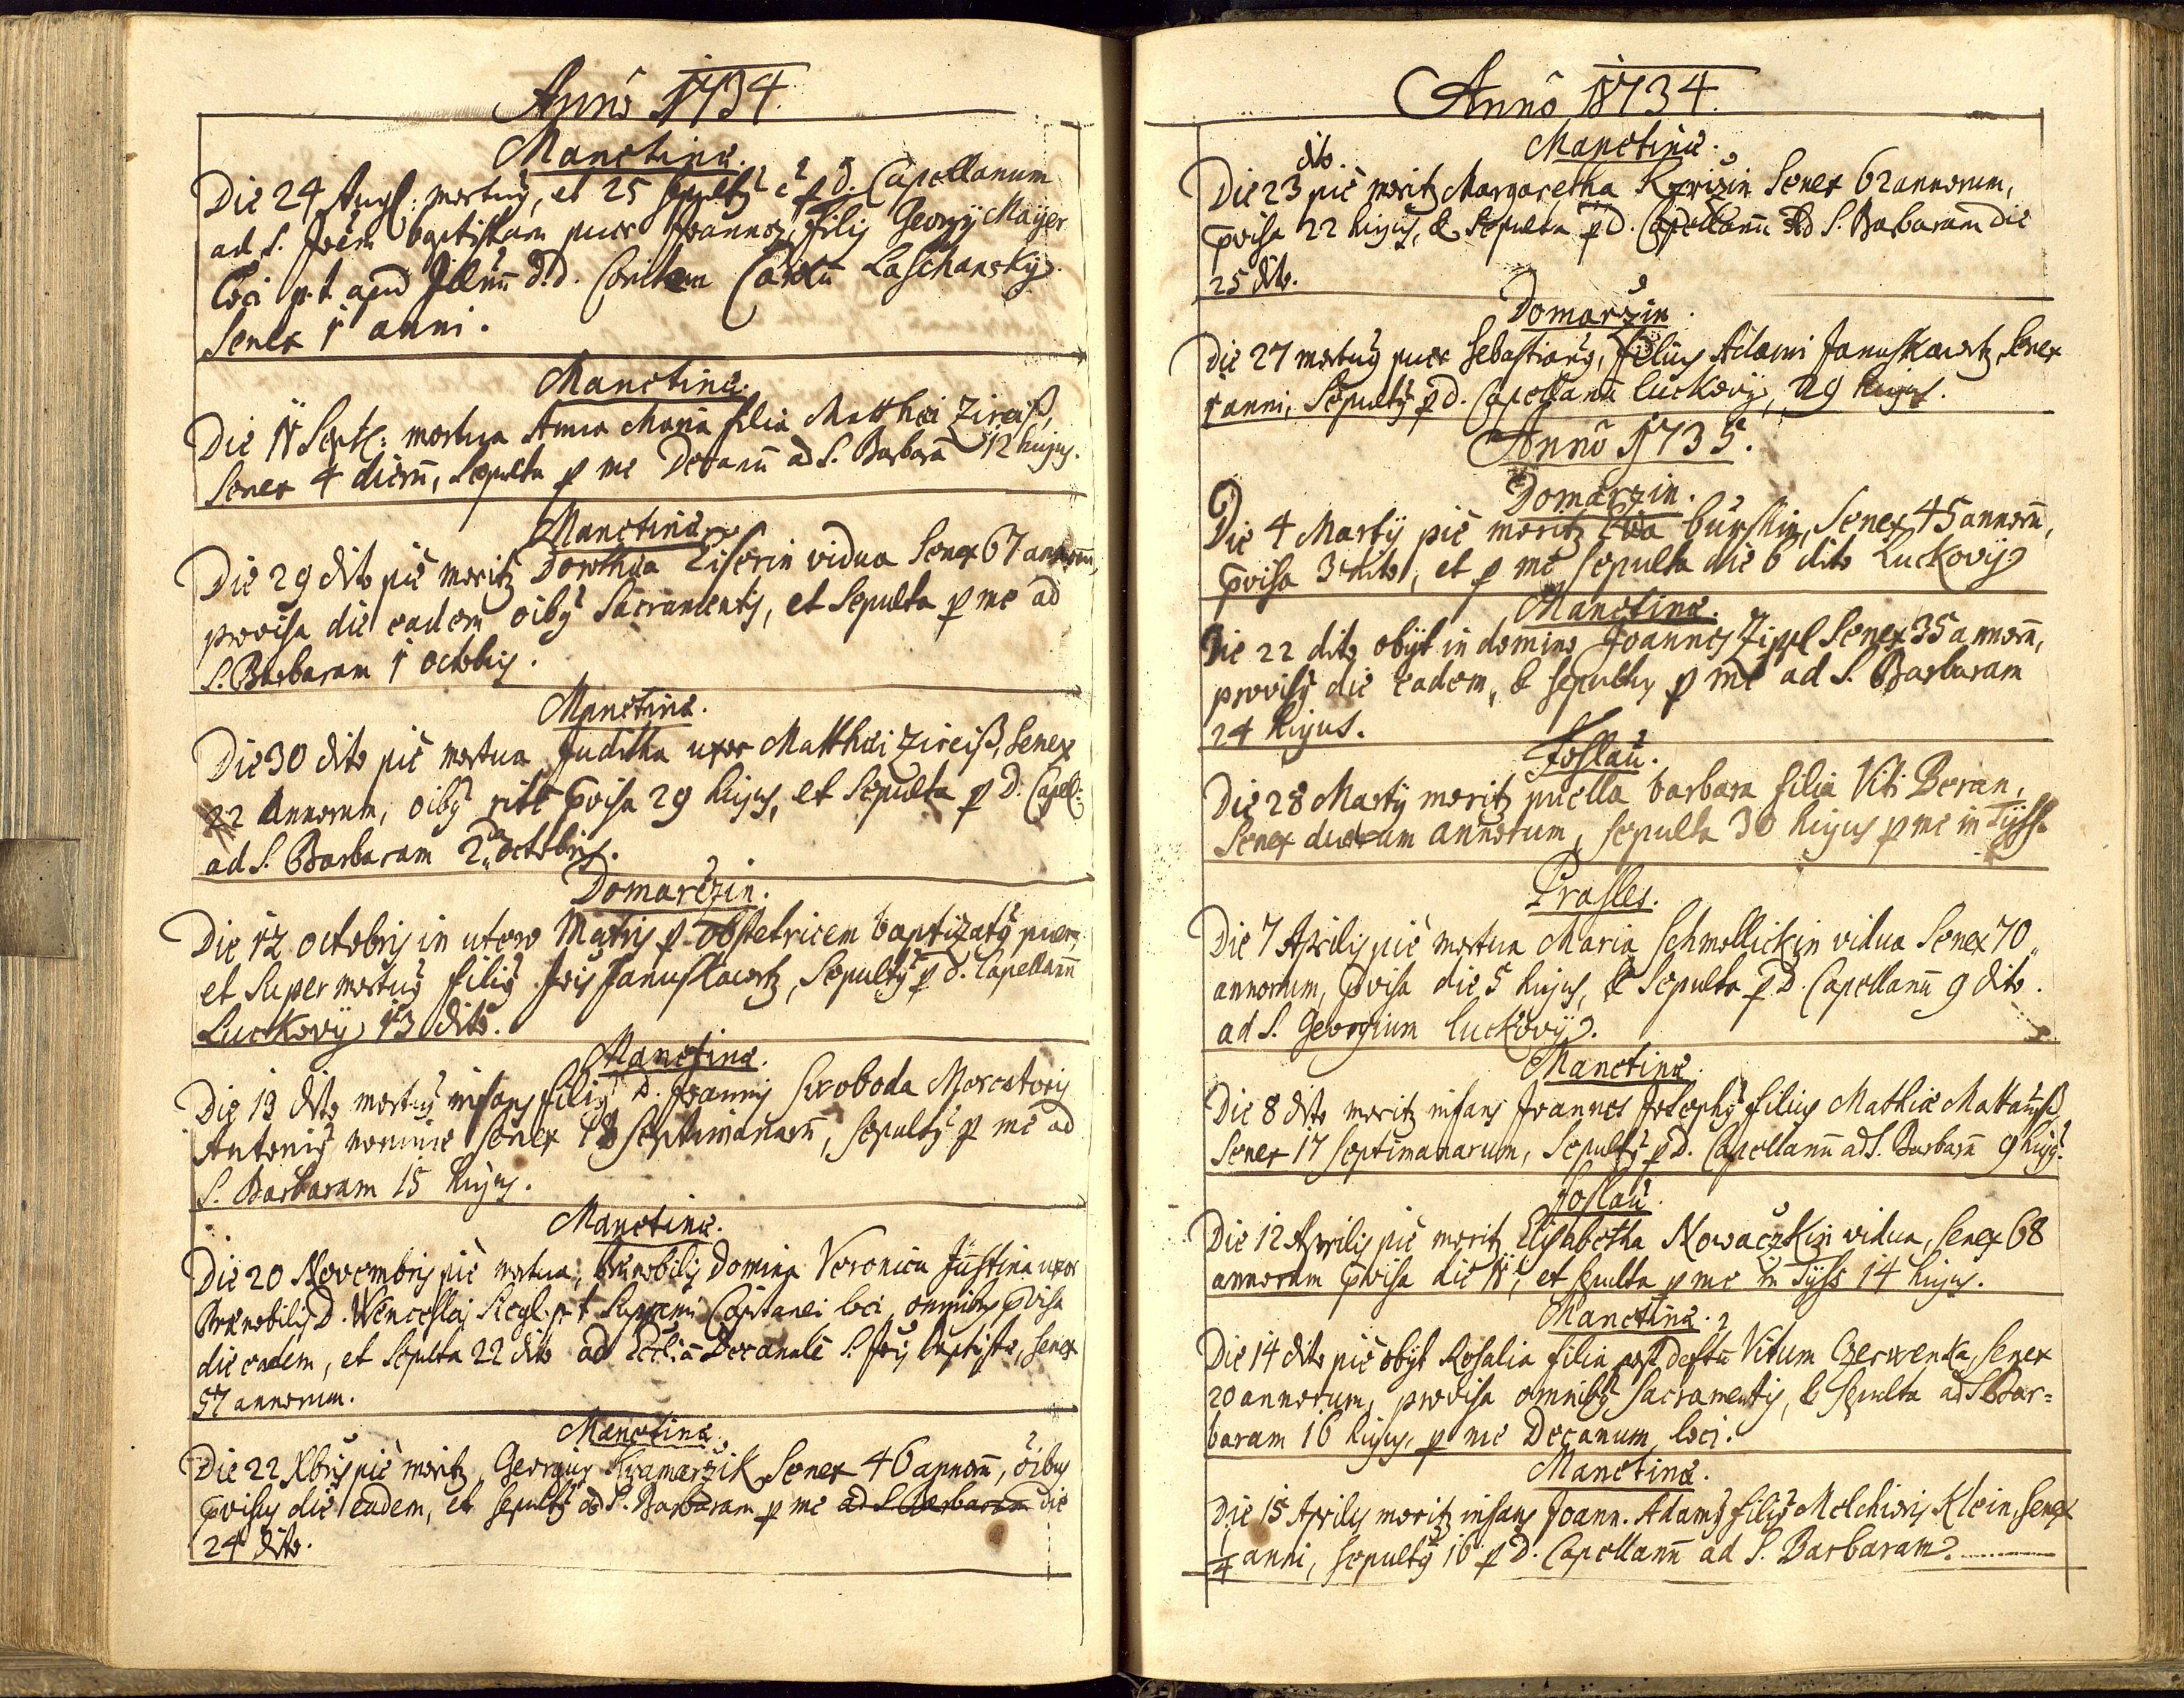 Annô 1734.
Manetinæ.
Die 24 Augt: mortuq, et 25 sepultq ẽ p D. Capellanum
ad S. Joẽm baptistam puer Joannes, filiq Georgÿ Maÿer
Coci p.t. apud Illm̃ D.D. Comitem Laschanskÿ.
Senex 1 anni.
Manetinæ.
Die 11 Sept: mortua Anna Maria filia Matthæi Zireiß,
Senex 4 dierũ, Sepulta p me Decanũ ad S. Barbarã 12 hujus.
Manetinæ.
Die 29 dito piè moritz Dorothea vidua Senex 67 annorũ,
provisa die eadem oibq Sacramentis, et Sepulta p me ad
S. Barbaram 1 octobris.
Manetinæ.
Die 30 dito piè mortua Juditha uxor Matthæi Zireiß, Senex
22 Annorum, oibq rite p̃visa 29 hujus, et Sepulta p D. Capell:
ad S. Barbaram 2 octobris.
Domarczin.
Die 12 octobris in utero Matris p obstetricem baptizatq puer,
et Super mortuq filiq Jois Januskowetz, Sepultq p D. Capellanũ
Luckovÿ 13 dito.
Manetinæ.
Die 13 dito mortuq infans filiq D. Joannis Swoboda Mercatoris
Antoniq nomine Senex 18 Septimanarũ, sepultq p me ad
S. Barbaram 15 hujus.
Manetinæ.
Die 20 Novembris piè mortua, prænobilis Domina Veronica Justina uxor
Prænobilis D. Wenceslai p.t. Supremi Capitanei loci, omnibus p̃visa
die eadem, et Sepulta 22 dito ad Eccl:ã Decanalẽ S. Jois Baptistæ, senex
57 annorum.
Manetinæ.
Die 22 Xbris piè moritz Georgius Kramarzik Senex 46 annorũ, oibus
p̃visus die eadem, et sepultq ad S. Barbaram p me ad S. Barbaram die
24 dito.
Annô 1734.
Manetinæ.
dito.
Die 23 piè moritz Margaretha Senex 62 annorum,
p̃visa 22 hujus, & Sepulta p D. Capellanũ ad S. Barbaram die
25 dito.
Domarczin.
Die 27 mortuq puer Sebastianq, filius Adami Januskowetz, Senex
1 anni, Sepultq p D. Capellanũ Luckovÿ, 29 hujus.
Annô 1735.
Domarczin.
Die 4 Martÿ piè moritz Eva Senex 45 annorũ,
p̃visa 3 dito, et p me sepulta die 6 dito Luckovÿ.
Manetinæ.
Die 22 dito obÿt in domino Joannes Zippl Senex 35 annorũ,
provisq die eadem, & sepultus p me ad S. Barbaram
24 hujus.
Joslau.
Die 28 Martÿ moritz puella barbara filia Viti Beran,
Senex duorum annorum, sepulta 30 hujus p me in Tÿss.
Prasles.
Die 7 Aprilis piè mortua Maria Schmollickin vidua Senex 70
annorum, p̃visa die 5 hujus, & Sepulta p D. Capellanũ 9 dito.
ad S. Georgium Luckovÿ.
Manetinæ.
Die 8 dito moritz infans Joannes Josephq filius Mathiæ Mattauß,
Senex 17 septimanarum, Sepultq p D. Capellanũ ad S. Barbarã 9 hujq.
Joslau.
Die 12 Aprilis piè moritz Elisabetha Nowaczkin vidua, senex 68
annorum p̃visa die 11, et sepulta p me in Tÿss 14 hujus.
Manetinæ.
Die 14 dito piè obÿt Rosalia filia post deftũ Vitum Czerwenka, Senex
20 annorum, provisa omnibq sacramentis, & sepulta ad S. Bar=
baram 16 hujus, p me Decanum loci.
Manetinæ.
Die 15 Aprilis moritz infans Joann. Adamq filiq Melchioris Klein, senex
1/4 anni, sepultq 16 p D. Capellanũ ad S. Barbaram.